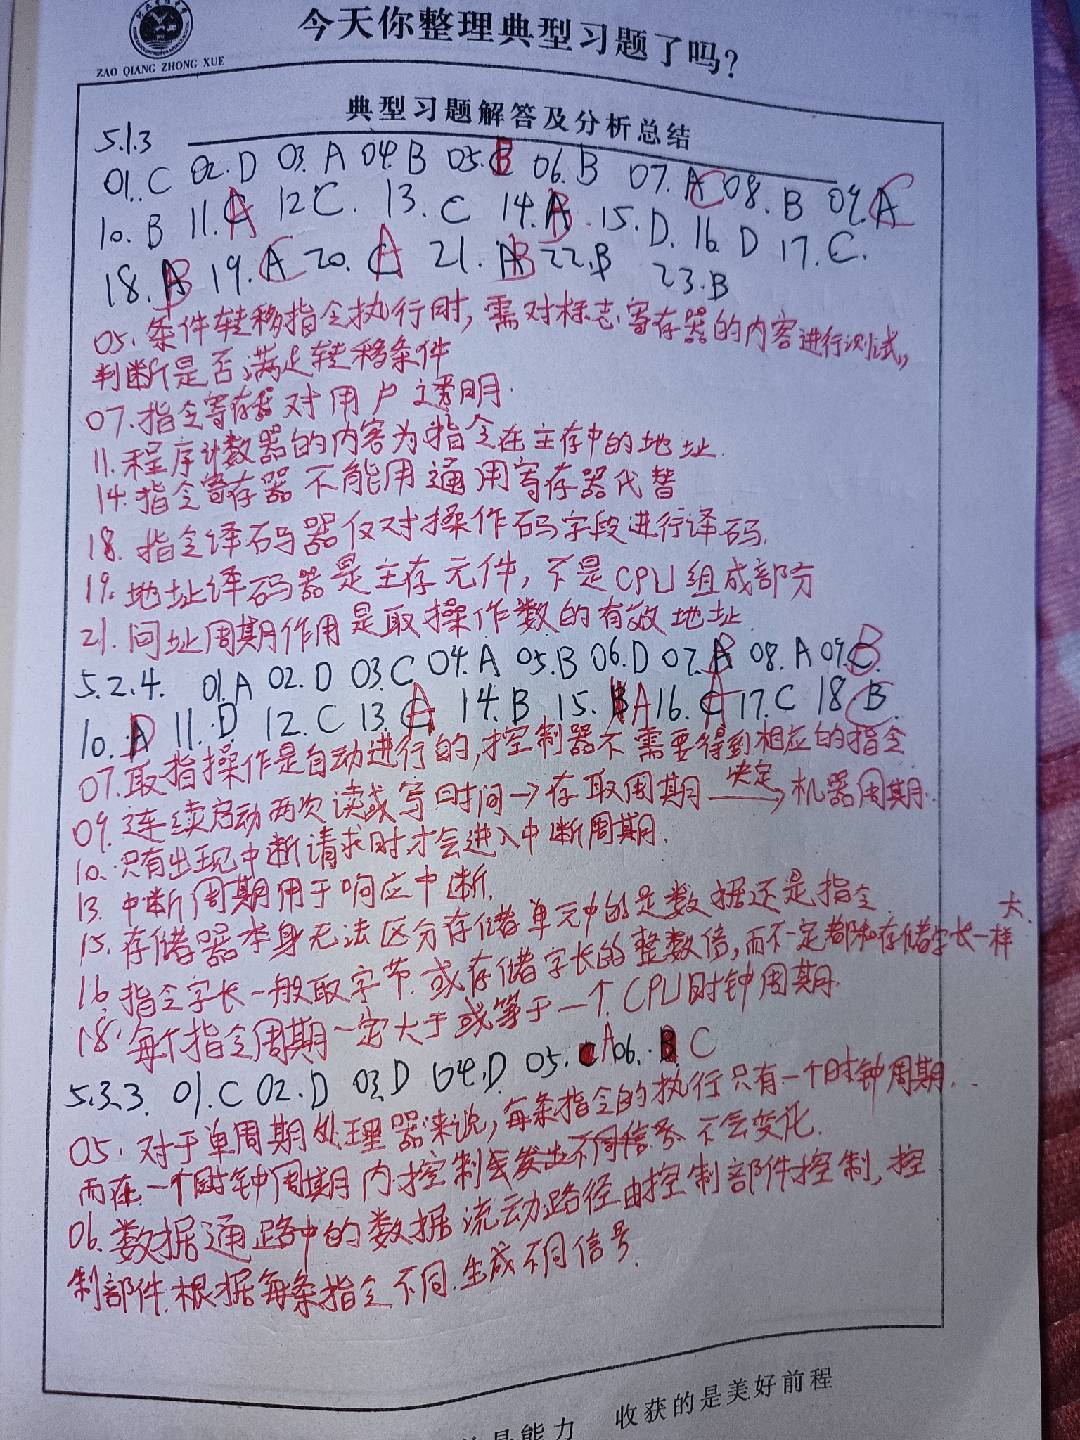 今天你整理典型习题了吗?
ZAO QIANG ZHONG XUE
典型习题解答及分析总结
5.1.3
01.C 02.D 03.A 04.B 05.B 06.B 07.C 08.B 09.C
10.B 11.A 12C. 13.C 14.B 15.D. 16.D 17.C.
18.B 19.C 20.A 21.B 22.B 23.B
05.条件转移指令执行时,需对标志寄存器的内容进行测试,
判断是否满足转移条件
07.指令寄存器对用户透明.
11.程序计数器的内容为指令在主存中的地址.
14.指令寄存器不能用通用寄存器代替
18.指令译码器仅对操作码字段进行译码.
19.地址译码器是主存元件,不是CPU组成部分
21.间址周期作用是取操作数的有效地址.
5.2.4. 01.A 02.D 03.C 04.A 05.B 06.D 07.B 08.A 09.B
10.D 11.D 12.C 13.A 14.B 15.A 16.A 17.C 18.B.
07.取指操作是自动进行的,控制器不需要得到相应的指令
09.连续启动两次读或写时间→存取周期 决定→ 机器周期.
10.只有出现中断请求时才会进入中断周期.
13.中断周期用于响应中断.
15.存储器本身无法区分存储单元中的是数据还是指令
16.指令字长一般取字节或存储字长的整数倍,而不一定都和存储字长一样大.
18.每个指令周期一定大于或等于一个CPU时钟周期.
5.3.3. 01.C 02.D 03.D 04.D 05.A 06.C
05.对于单周期处理器来说,每条指令的执行只有一个时钟周期.
而在一个时钟周期内控制器发出不同信号不会变化.
06.数据通路中的数据流动路径由控制部件控制,控
制部件根据每条指令不同.生成不同信号.
是能力 收获的是美好前程